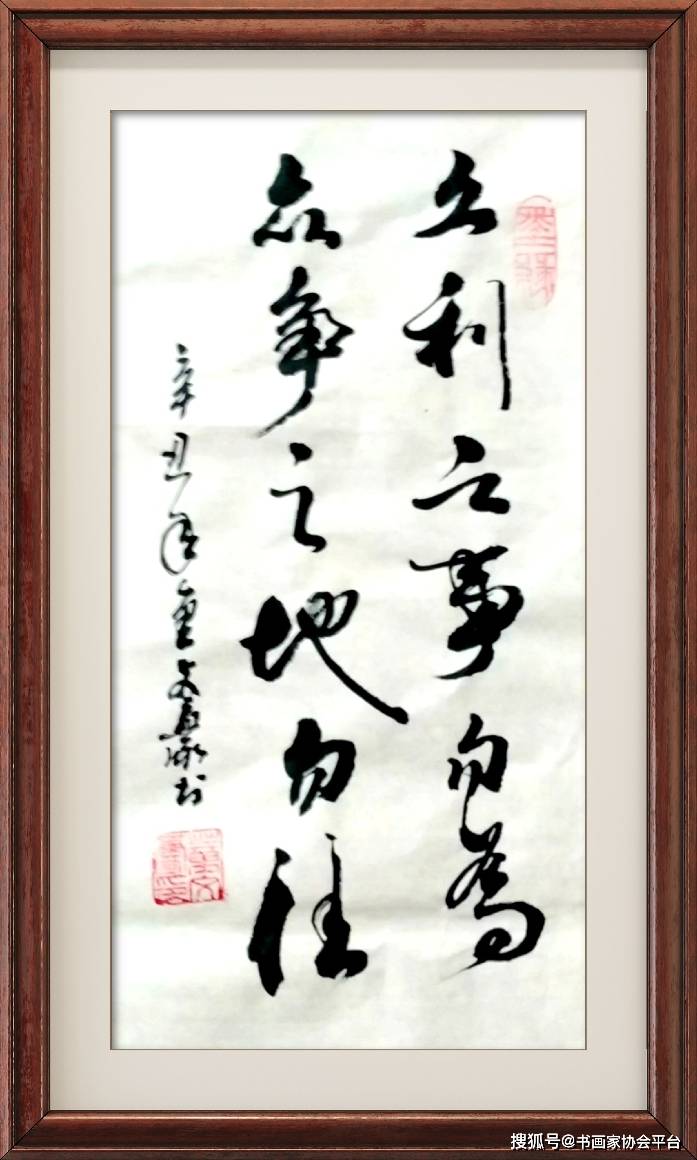 久利之事勿為
众争之地勿往
辛丑年
搜狐号@书画家协会平台